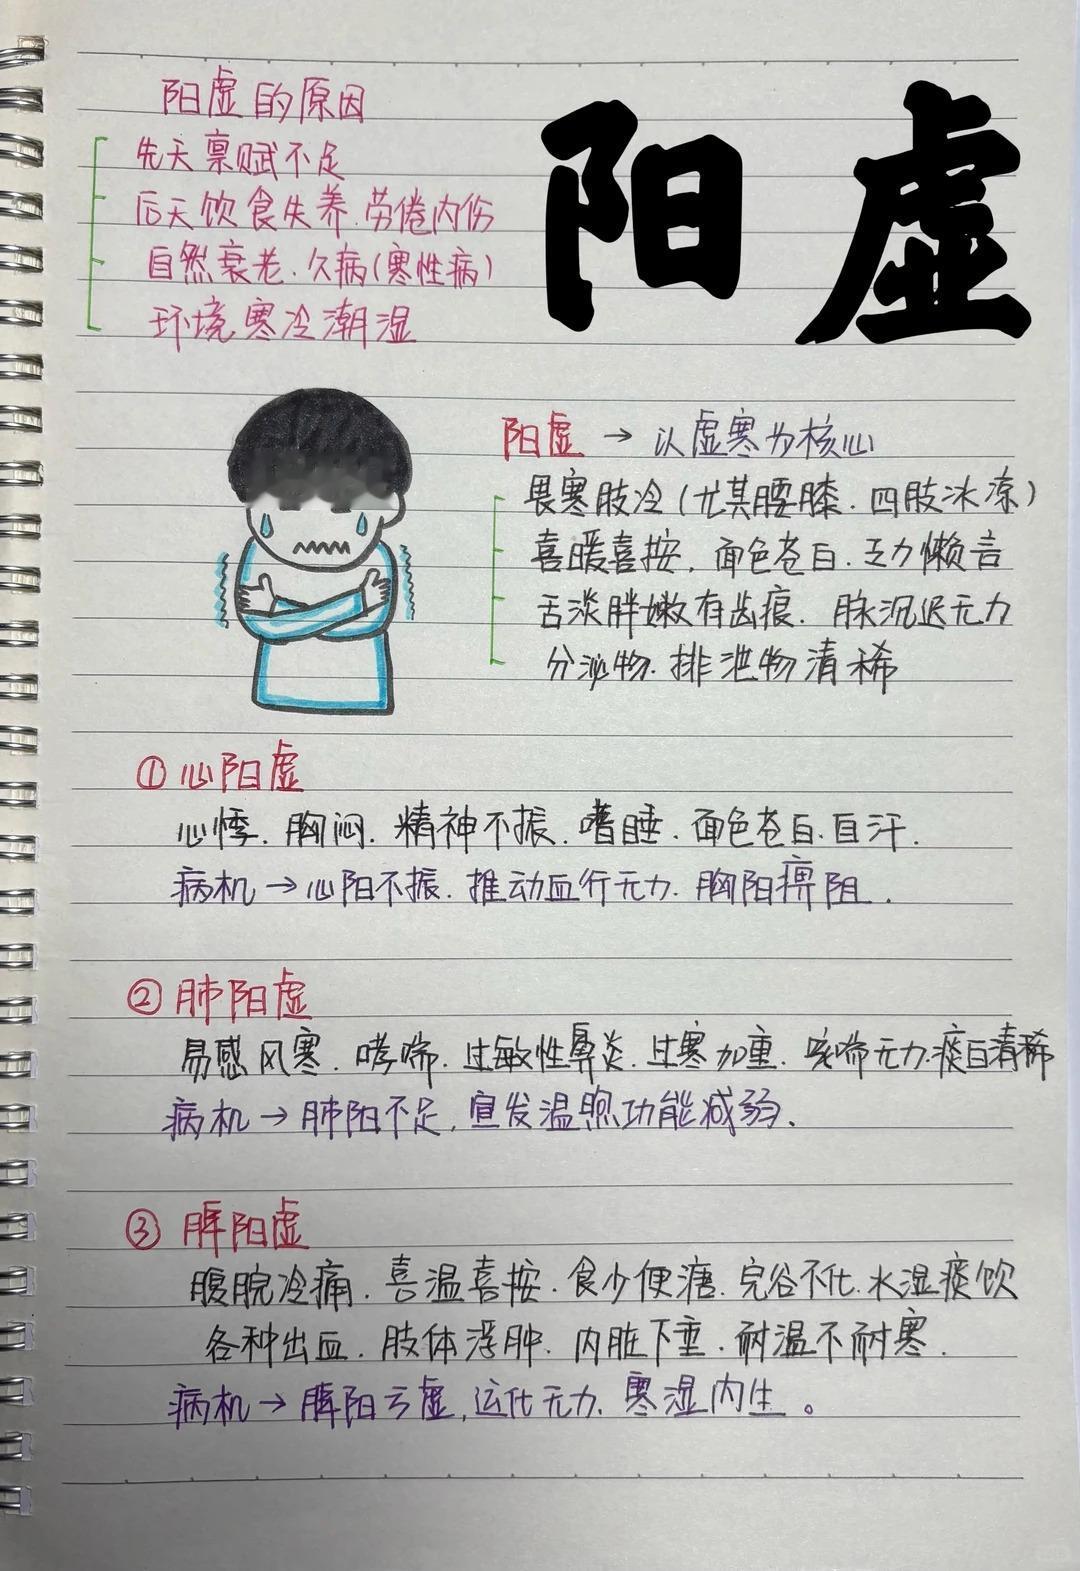 阳虚
阳虚的原因
先天禀赋不足
后天饮食失养.劳倦内伤
自然衰老.久病(寒性病)
环境寒冷潮湿
阳虚→以虚寒为核心
畏寒肢冷(尤其腰膝.四肢冰凉)
喜暖喜按,面色苍白.乏力懒言
舌淡胖嫩有齿痕.脉沉迟无力
分泌物.排泄物清稀
①心阳虚
心悸.胸闷.精神不振.嗜睡.面色苍白.自汗.
病机→心阳不振.推动血行无力.胸阳痹阻.
②肺阳虚
易感风寒.哮喘.过敏性鼻炎.过寒加重.咳喘无力.痰白清稀
病机→肺阳不足,宣发温煦功能减弱.
③脾阳虚
腹脘冷痛.喜温喜按.食少便溏.完谷不化.水湿痰饮
各种出血.肢体浮肿.内脏下垂.耐温不耐寒.
病机→脾阳亏虚,运化无力.寒湿内生。